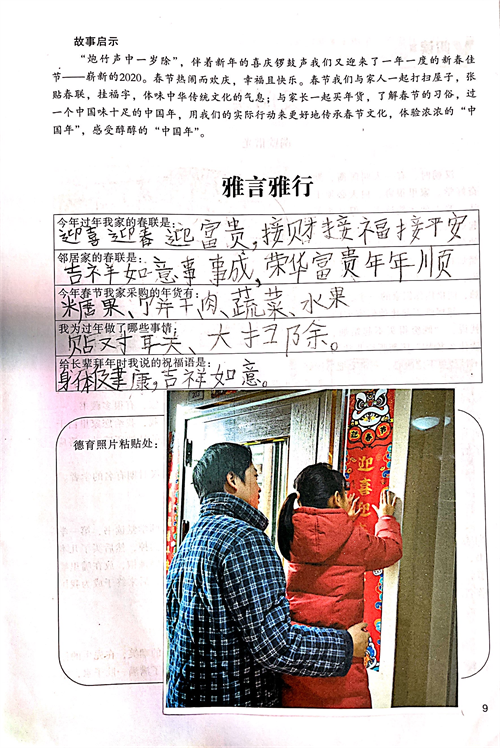 故事启示
“炮竹声中一岁除”，伴着新年的喜庆锣鼓声我们又迎来了一年一度的新春佳
节——崭新的2020。春节热闹而欢庆，幸福且快乐。春节我们与家人一起打扫屋子，张
贴春联，挂福字，体味中华传统文化的气息；与家长一起买年货，了解春节的习俗，过
一个中国味十足的中国年，用我们的实际行动来更好地传承春节文化，体验浓浓的“中
国年”，感受醇醇的“中国年”。
雅言雅行
今年过年我家的春联是：
迎喜迎春迎富贵，接财接福接平安
邻居家的春联是：
吉祥如意事事成，荣华富贵年年顺
今年春节我家采购的年货有：
糖果、牛肉、蔬菜、水果
我为过年做了哪些事情：
贴对联、大扫除。
给长辈拜年时我说的祝福语是：
身体健康，吉祥如意。
德育照片粘贴处：
迎春接福
迎喜迎
9